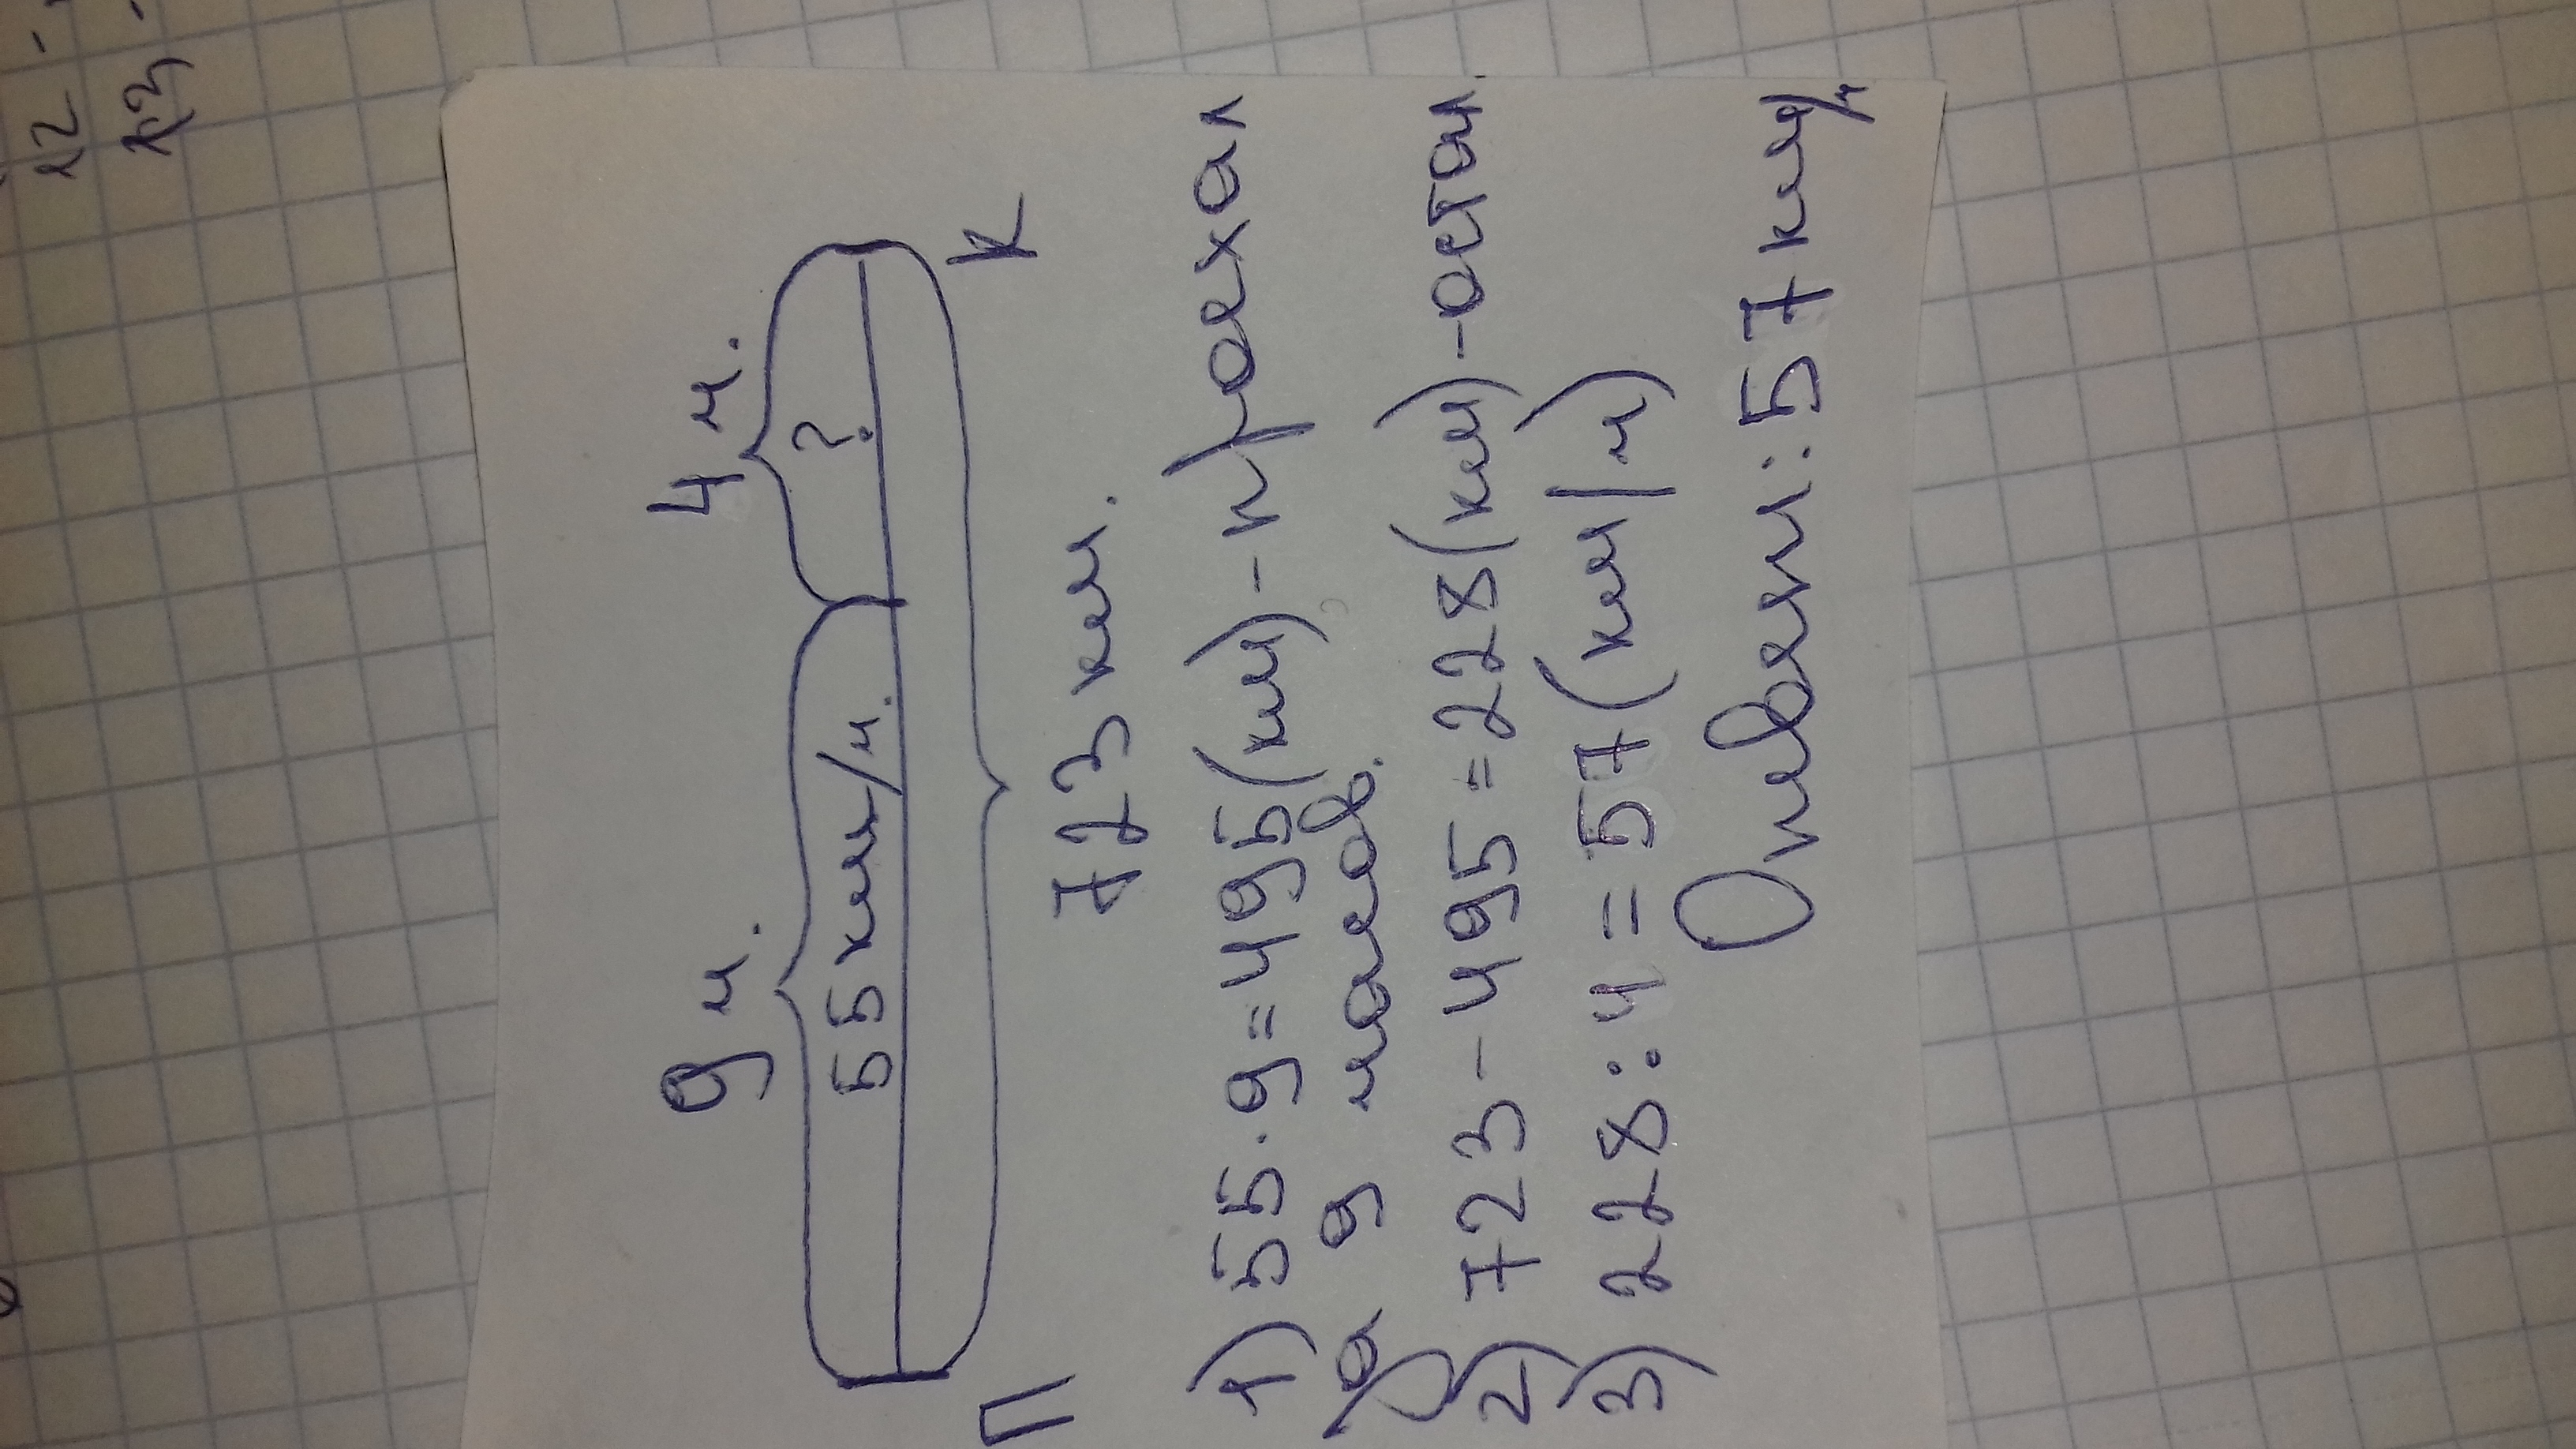 12 -
9 ч. 4 ч.
55 км/ч. ?
П К
723 км.
1) 55 · 9 = 495 (км) - проехал
за 9 часов.
2) 723 - 495 = 228 (км) - остал.
3) 228 : 4 = 57 (км/ч)
Ответ: 57 км/ч